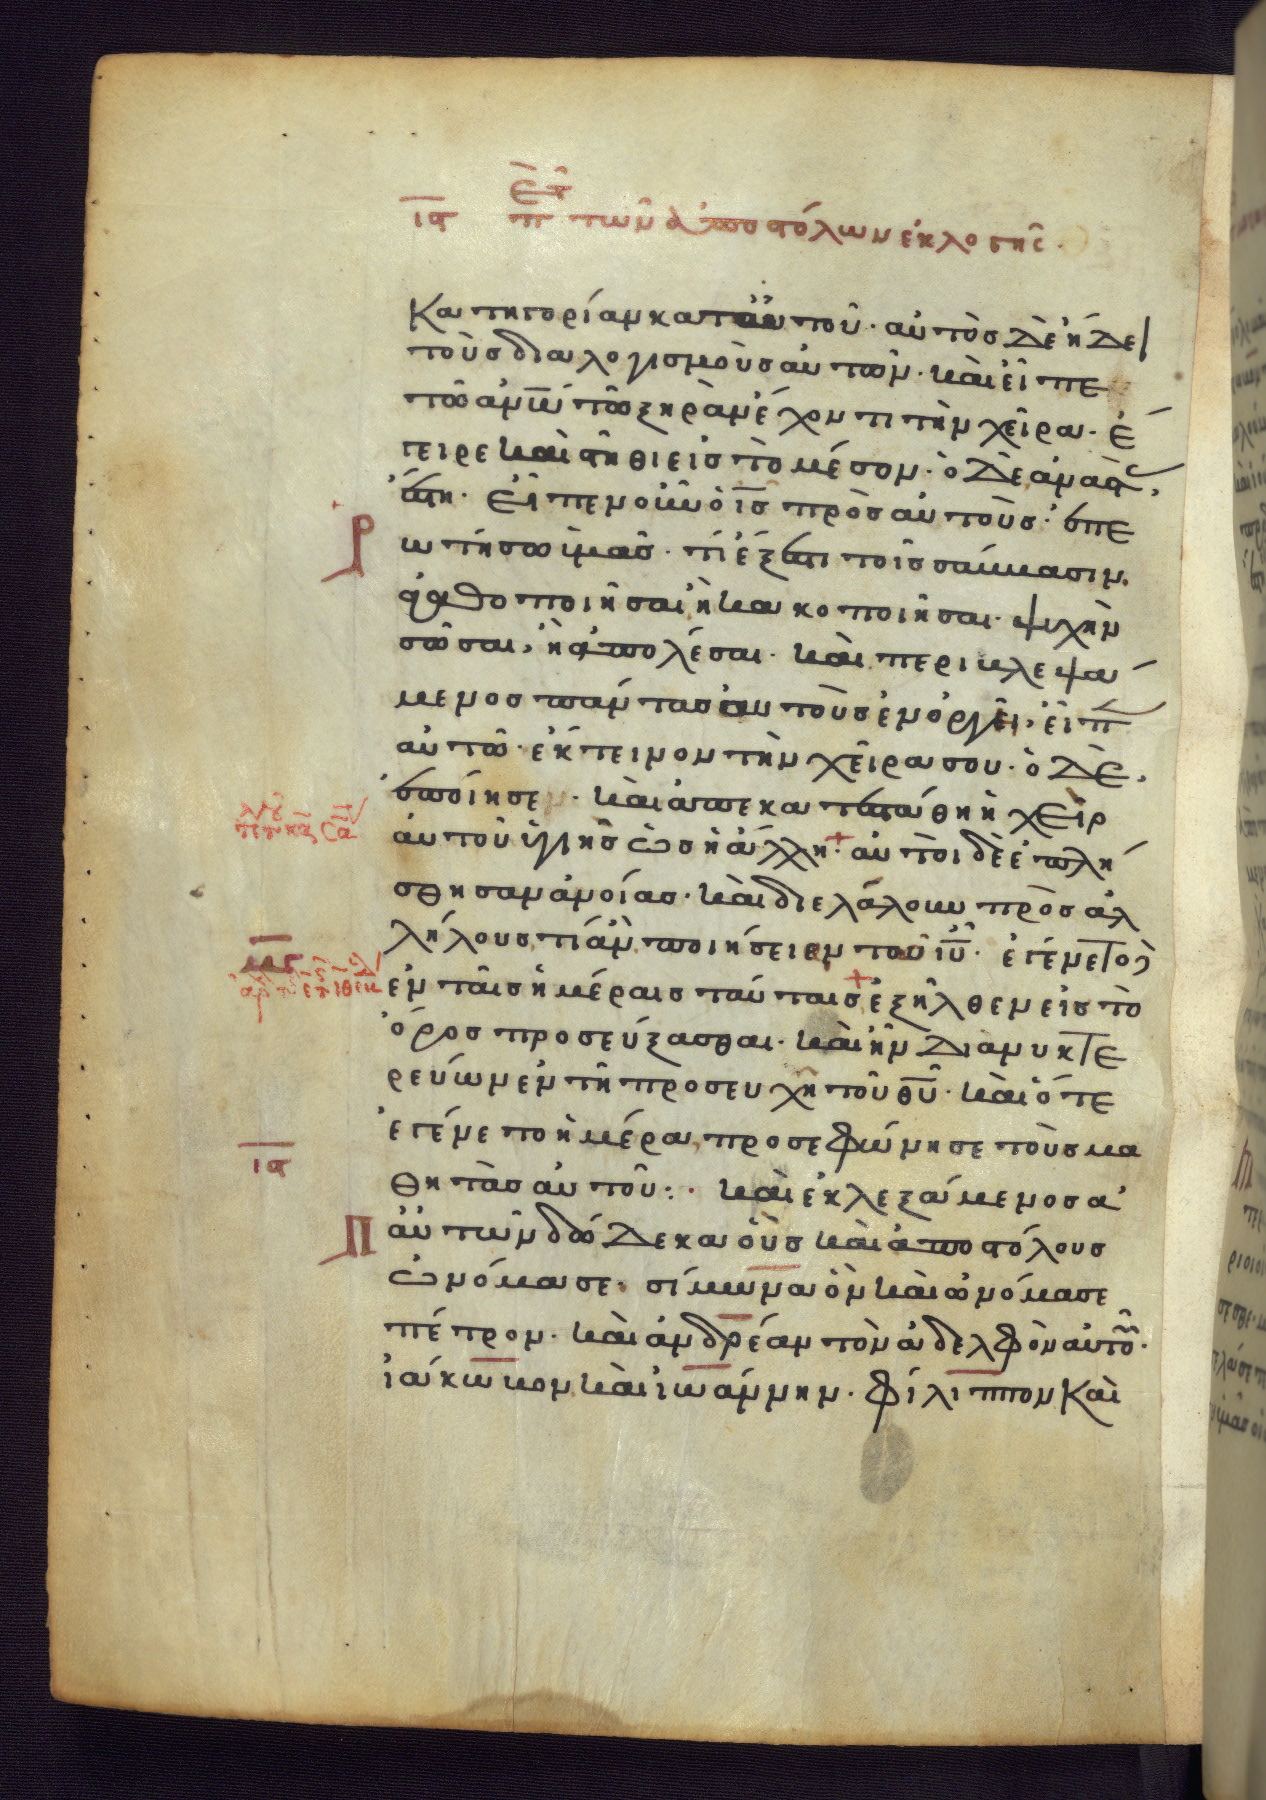 ια π τῶν ἀποστόλων ἐκλογῆς.
κατηγορίαν κατὰ αὐτοῦ· αὐτὸς δὲ ἤδει
τοὺς διαλογισμοὺς αὐτῶν· καὶ εἶπε
τῶ ἀν̅ω̅ τῶ ξηρὰν ἔχοντι τὴν χεῖρα· ἔ
γειρε καὶ στῆθι εἰς τὸ μέσον· ὁ δὲ ἀναστ(ὰς)
ἔστη· Εἶπεν οὖν ὁ ι̅ς̅ πρὸς αὐτούς· ἐπε
ρωτήσω ὑμᾶς· τί ἔξεστι τοῖς σάββασιν.
ἀγαθοποιῆσαι ἢ κακοποιῆσαι· ψυχὴν
σῶσαι, ἢ ἀπολέσαι· καὶ περιβλεψά
μενος πάντας αὐτοὺς ἐν ὀργῆ, εἶπ(εν)
αὐτῶ· ἔκτεινον τὴν χεῖρα σου· ὁ δὲ
ἐποίησεν· καὶ ἀπεκατεστάθη ἡ χεὶρ
αὐτοῦ ὑγιὴς ὡς ἡ ἄλλη· αὐτοὶ δὲ ἐπλή
σθησαν ἀνοίας· καὶ διελάλουν πρὸς ἀλ
λήλους τί ἂν ποιήσειεν τοῦ ι̅υ̅· ἐγένετο δὲ
ἐν ταῖς ἡμέραις ταύταις ἐξῆλθεν εἰς τὸ
ὄρος προσεύξασθαι· καὶ ἦν διανυκτε
ρεύων ἐν τῆ προσευχῆ τοῦ θ̅υ̅· καὶ ὅτε
ἐγένετο ἡμέρα, προσεφώνησε τοὺς μα
ια
θητὰς αὐτοῦ:· καὶ ἐκλεξάμενος ἀ
π αὐτῶν δώδεκα οὓς καὶ ἀποστόλους
ὠνόμασε· σίμωνα ὃν καὶ ὠνόμασε
πέτρον· καὶ ἀνδρέαν τὸν ἀδελφὸν αὐτοῦ·
ἰάκωβον καὶ ἰωάννην· φίλιππον καὶ